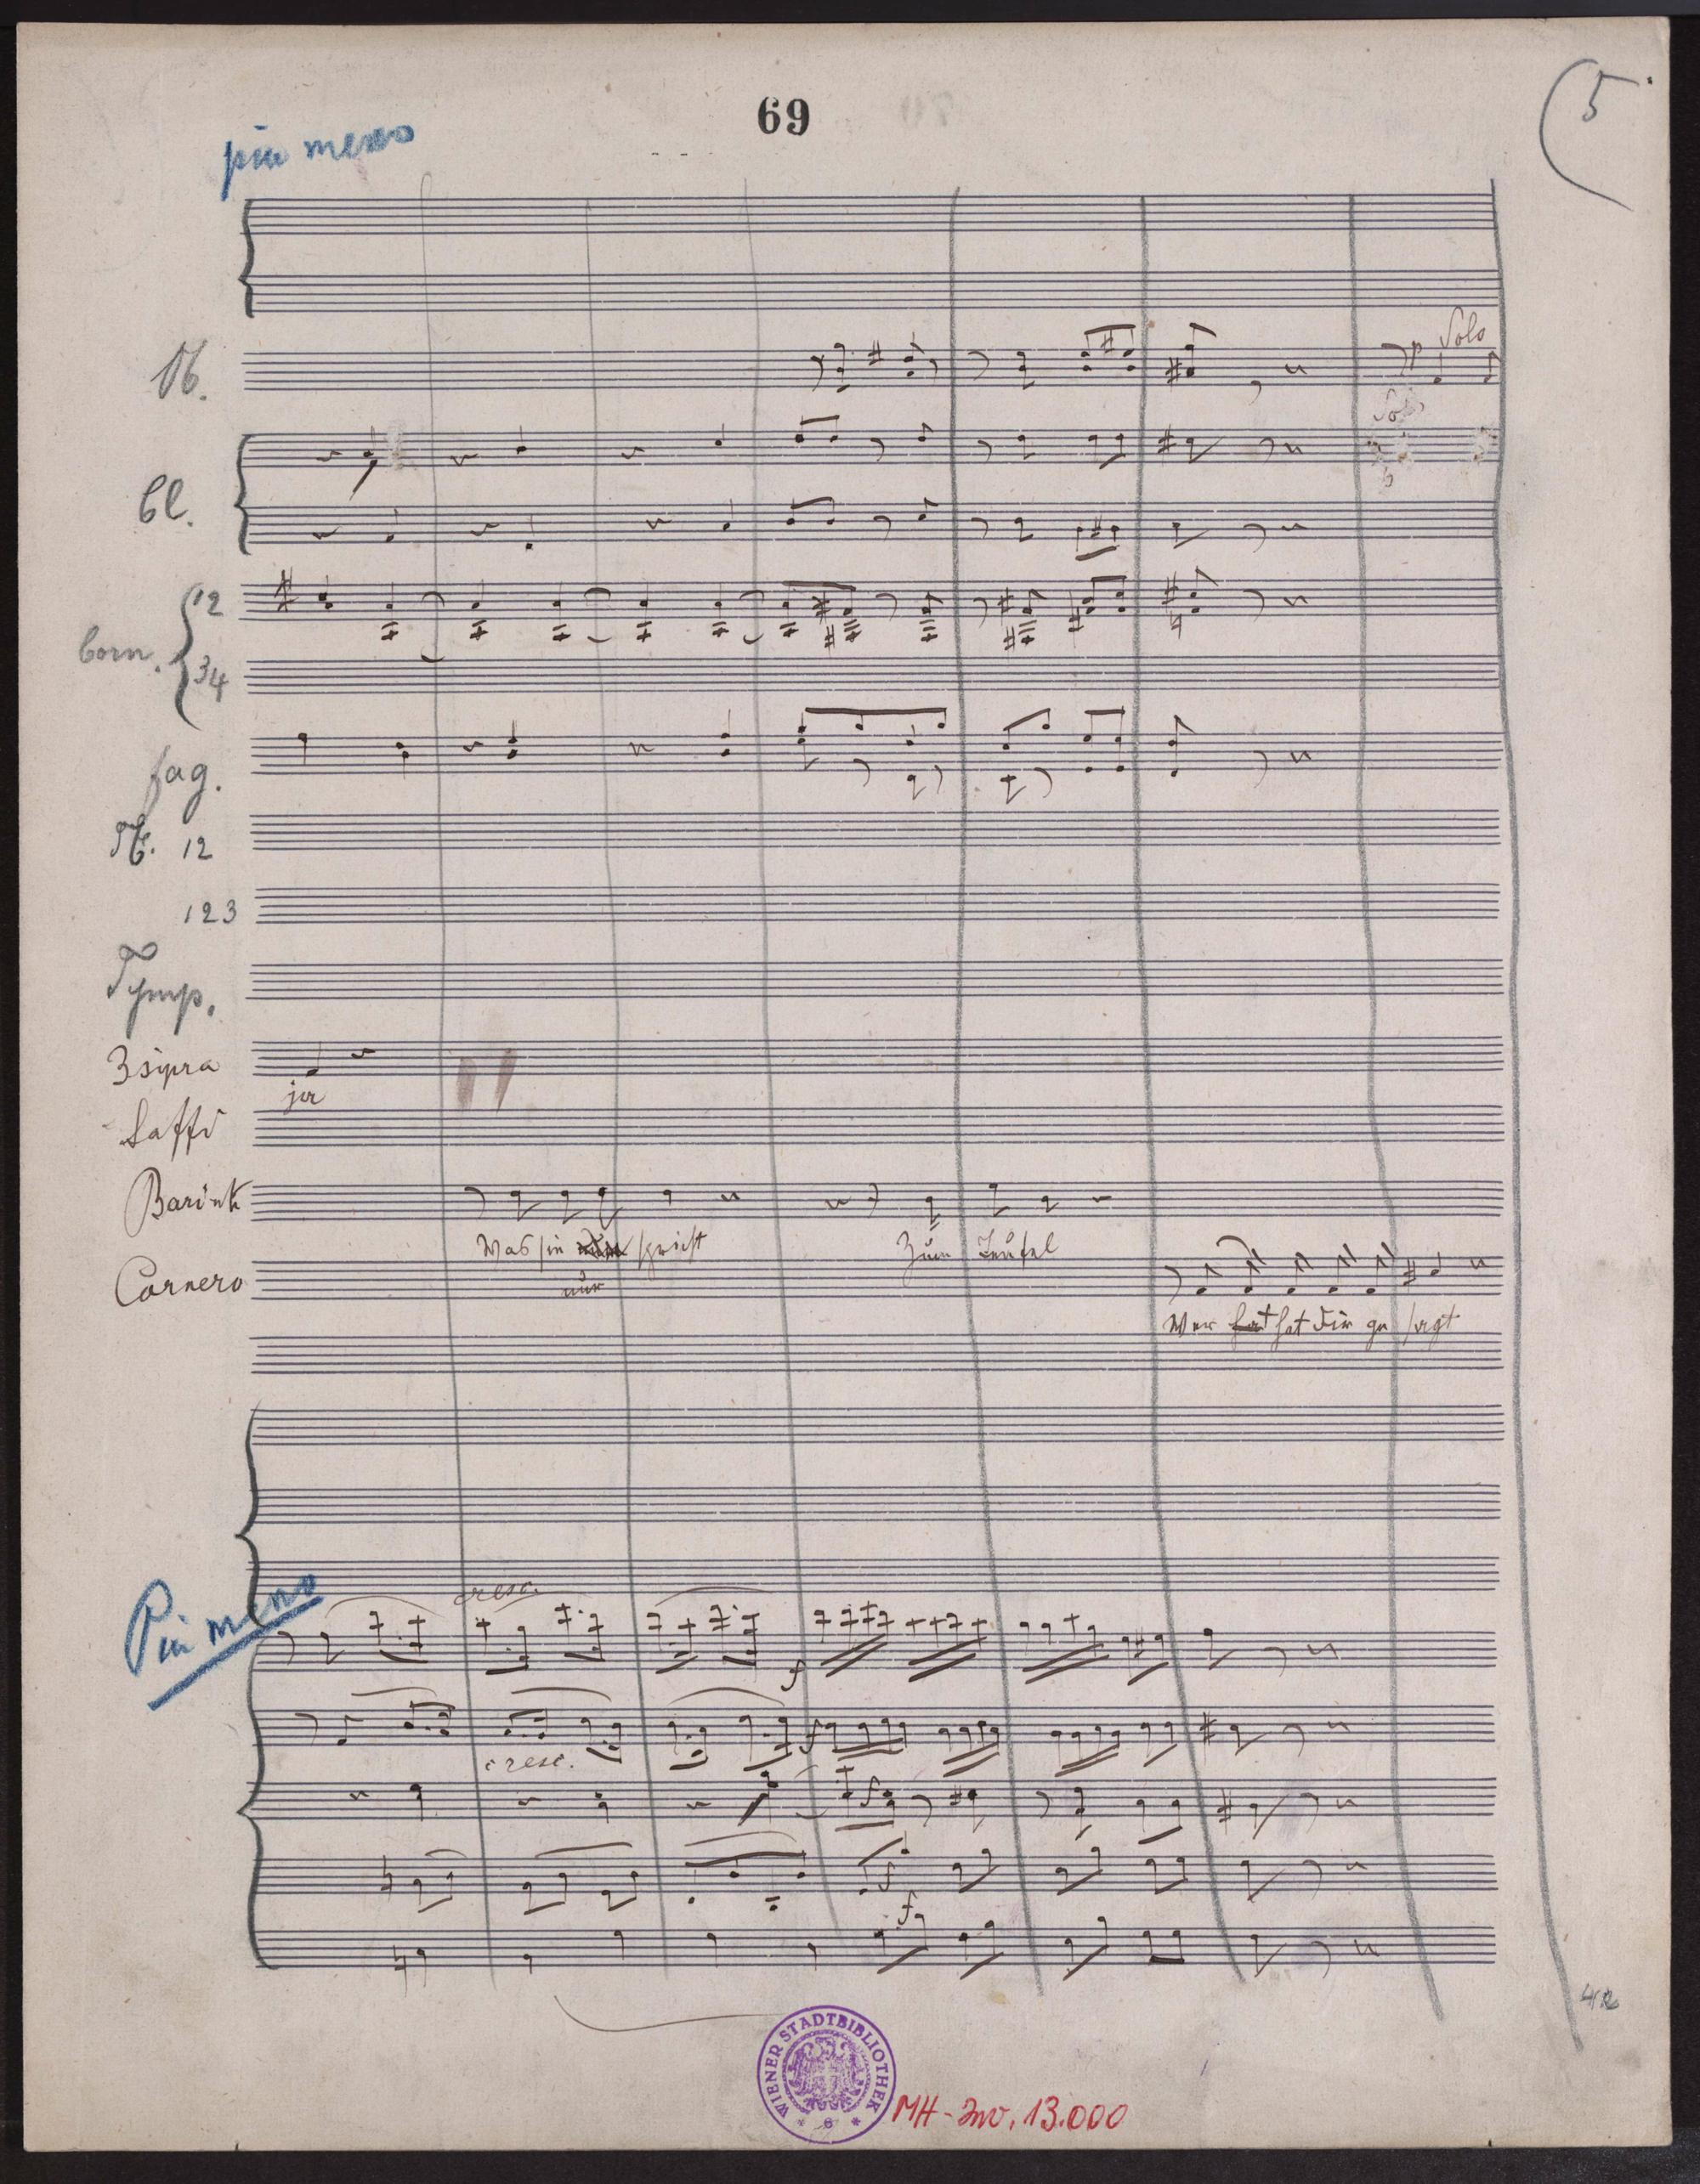 69
(5.
più meno
Ob.
Solo
Solo
Cl.
12
Corn.
34
fag.
Tr. 12
123
Tymp.
Zsipra
ja
Saffi
Barink
Was sie spricht
nur
Zum Teufel
Carnero
Wer hat hat dir ge sagt
cresc.
Più meno
f
cresc.
f
f
f
f
WIENER STADTBIBLIOTHEK
* 6 *
MH-Inv. 13.000